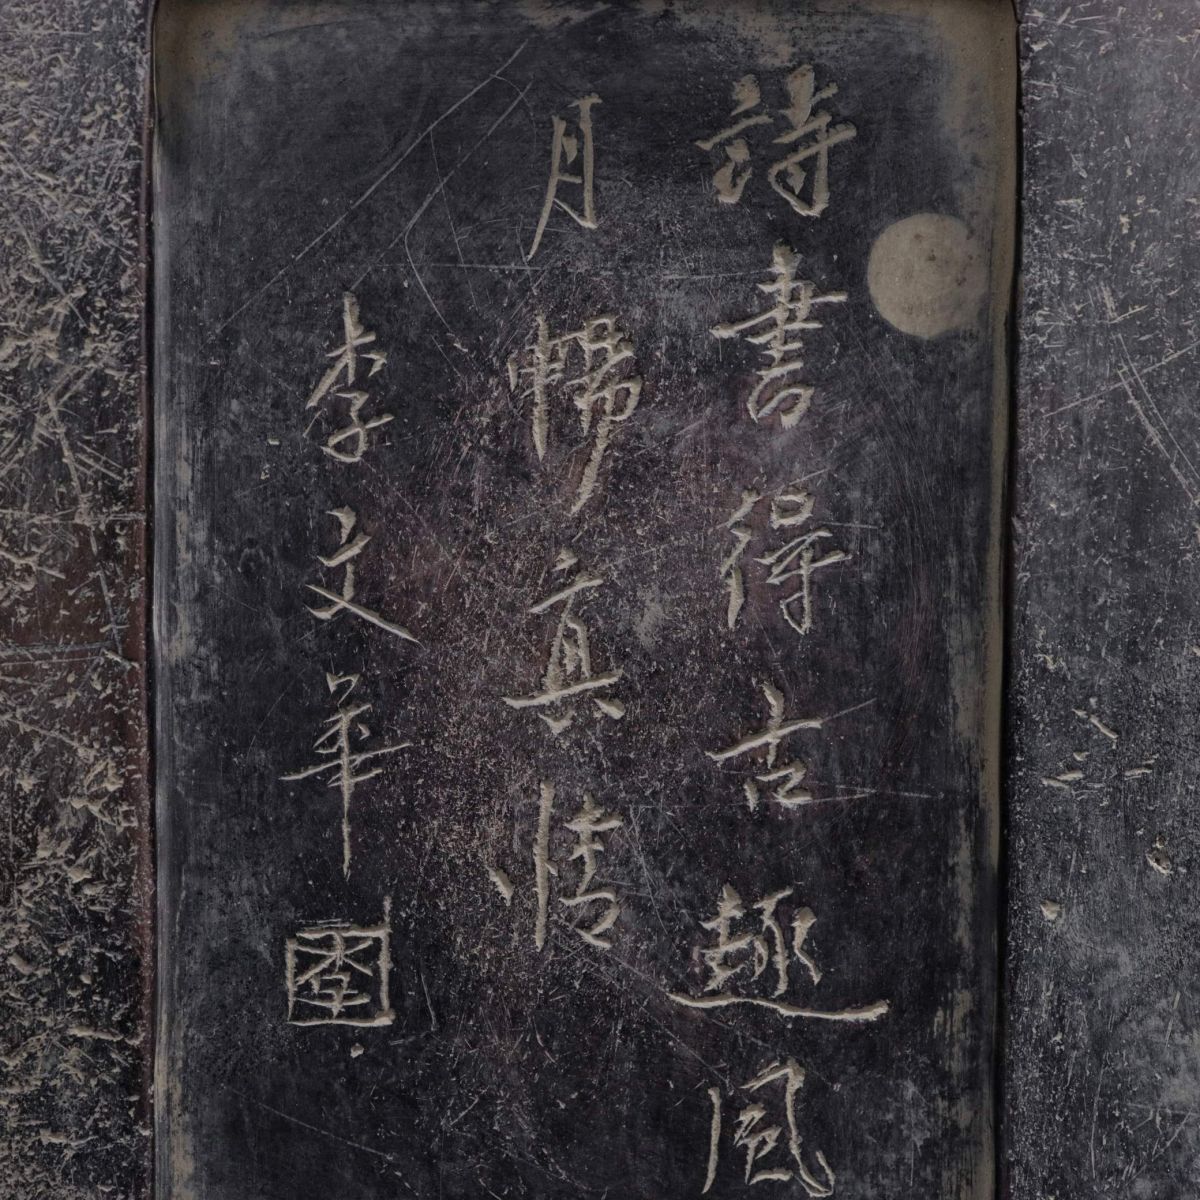 詩書得古趣風
月暢真情
李文華
李